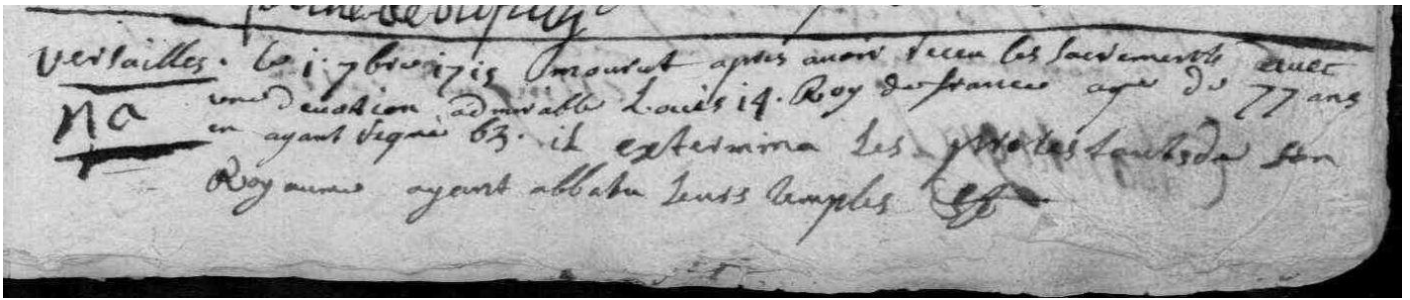 versailles. le 1. 7bre 1715 mourut apres avoir receu les sacrements avec
une devotion admirable Louis 14. Roy de france agé de 77 ans
Na
en ayant regné 63. il extermina les protestants de son
Royaume ayant abbatu leurs temples